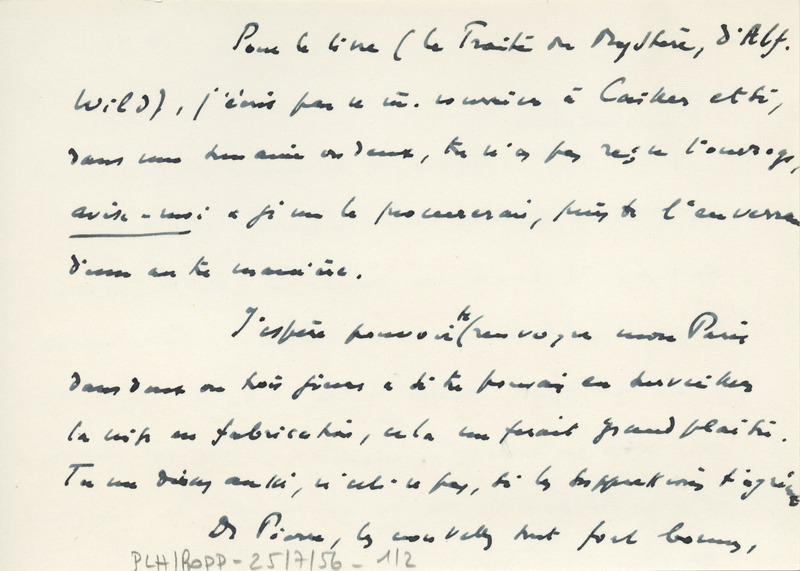 Pour le livre (le Traité du Mystère, d'Alf.
Wild), j'écris par ce m. courrier à Caskes et si,
dans une semaine ou deux, tu n'as pas reçu l'ouvrage,
avise-moi & je me le procurerai, puis te l'enverrai
d'une autre manière.
J'espère pouvoir te renvoyer mon Paris
dans deux ou trois jours & si tu pouvais en surveiller
la mise en fabrication, cela me ferait grand plaisir.
Tu me diras aussi, n'est-ce pas, si les suppressions t'agréent
De Pierre, les nouvelles sont fort bonnes,
PLH/ROPP-25/7/56-1/2